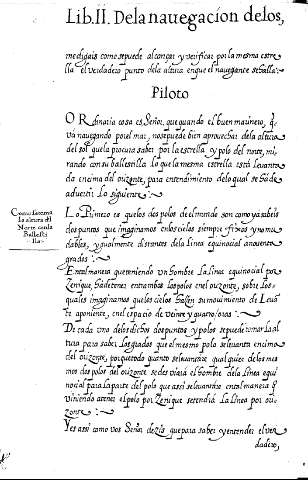 Lib. II. De la nauegacíon de los,
medigais como se puede alcançar y verificar por la mesma estre
lla el verdadero punto dela altura en que el nauegante se halla.
Piloto
ORdinaria cosa es Señor, que quando el buen marinero, q̃
vá nauegando por el mar, no se puede bien aprouechar dela altura
del sol que la procura saber por la estrella y polo del norte, mi,
rando con su ballestilla lo que la mesma estrella está leuanta
da encima del orizonte, para entendimiento delo qual se há de
aduertir lo siguiente
Como se toma
la altura dl
Norte con la
Ballesti
lla
Lo Primero es que los dos polos del mundo son como ya sabeis
dos puntos que imaginamos en los cielos siempre fixos y no mu
dables, y igualmente distantes dela linea equinocial a nouenta
grados
En tal manera que teniendo vn hombre la linea equinocial por
Zenique, há de tener entrambos los polos en el orizonte, sobre los
quales imaginamos que los cielos hazen su mouimiento de Leuā
te a poniente, en el espacio de veinte y quatro horas
De cada vno delos dichos dos puntos y polos se puede tomar la al
tura para saber los grados que el mesmo polo se leuanta encima
del orizonte, porque todo quanto se leuantare qualquier delos mes
mos dos polos del orizonte se desuiará el hombre dela linea equi
nocial para la parte del polo que assi se leuantare en tal manera q̃
viniendo a tener el polo por Zenique se tendrá la linea por ori
zonte
Y es assi como vos Señor dezis que para saber y entender el ver
dadero,